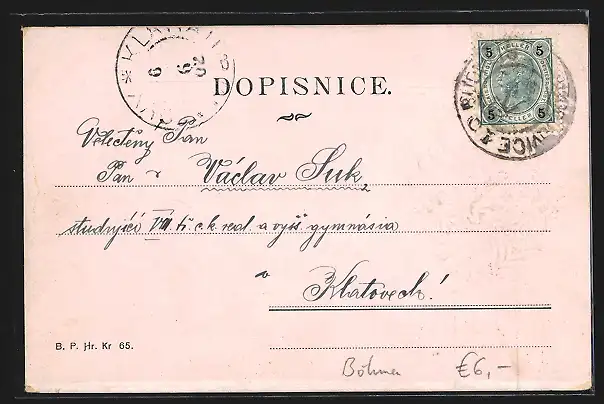 DOPISNICE.
5 HELLER 5
5 5
Velectěný Pan
Pan
Václav Suk,
studující VII. tř. c. k. real. a vyš. gymnásia
v
Klatovech!
B. P. Hr. Kr 65.
Böhmen €6,-